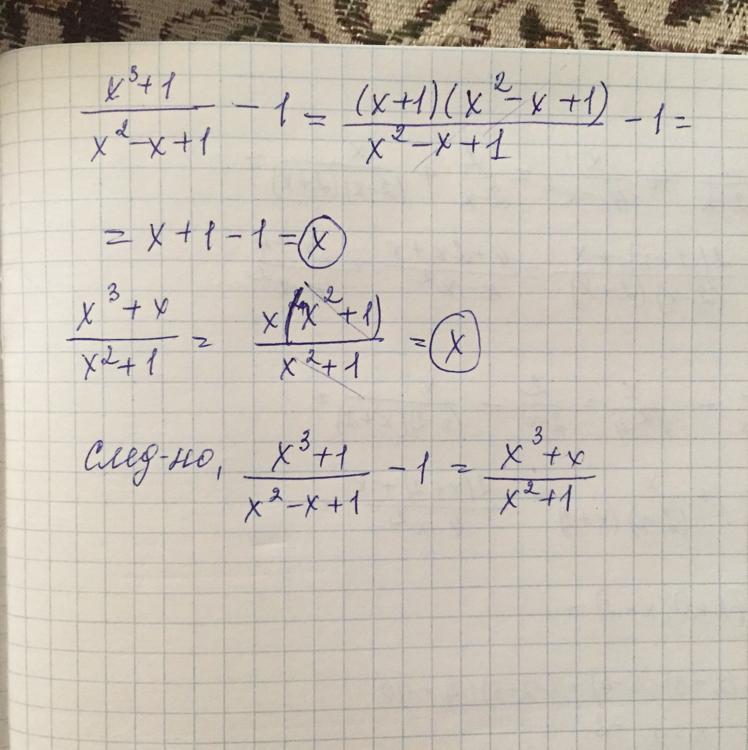 (x³+1)/(x²-x+1) - 1 = ((x+1)(x²-x+1))/(x²-x+1) - 1 =
= x+1-1 = x
(x³+x)/(x²+1) = (x(x²+1))/(x²+1) = x
След-но, (x³+1)/(x²-x+1) - 1 = (x³+x)/(x²+1)